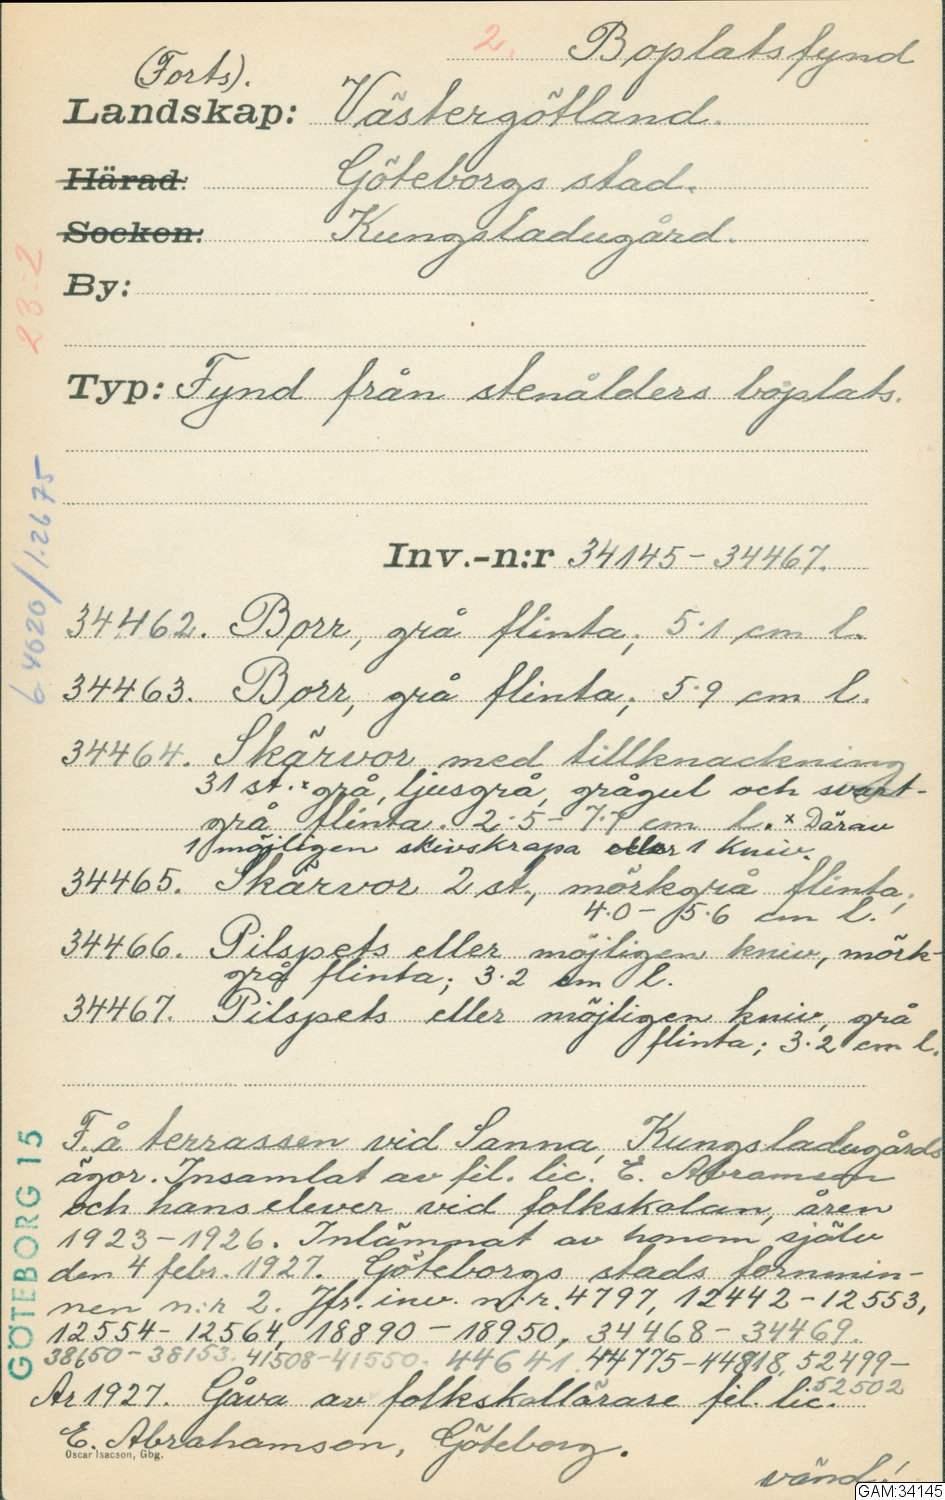 2. Boplatsfynd
(Forts).
Landskap: Västergötland.
Härad: Göteborgs stad.
Socken: Kungsladugård.
By:
23:2
Typ: Fynd från stenålders boplats.
6 4620/1.26 75
Inv.-n:r 34145-34467.
34462. Borr, grå flinta; 5.1 cm l.
34463. Borr, grå flinta; 5.9 cm l.
34464. Skärvor med tillknackning
31 st.x grå, ljusgrå, grågul och svart-
grå flinta. 2.5-7.7 cm l. x Därav
1 möjligen skivskrapa eller 1 kniv.
34465. Skärvor 2 st., mörkgrå flinta;
4.0-5.6 cm l.
34466. Pilspets eller möjligen kniv, mörk-
grå flinta; 3.2 cm l.
34467. Pilspets eller möjligen kniv, grå
flinta; 3.2 cm l.
GÖTEBORG 15
F. å terrassen vid Sanna, Kungsladugårds
ägor. Insamlat av fil. lic. E. Abramson
och hans elever vid folkskolan, åren
1923-1926. Inlämnat av honom själv
den 4 febr. 1927. Göteborgs stads fornmin-
nen n:r 2. Jfr. inv. n:r. 4797, 12442-12553,
12554-12564, 18890-18950, 34468-34469.
38150-38153. 41508-41550. 44641. 44775-44818, 52499-
52502
Ar 1927. Gåva av folkskollärare fil. lic.
E. Abrahamson, Göteborg.
Oscar Isacson, Gbg.
vänd!
GAM:34145